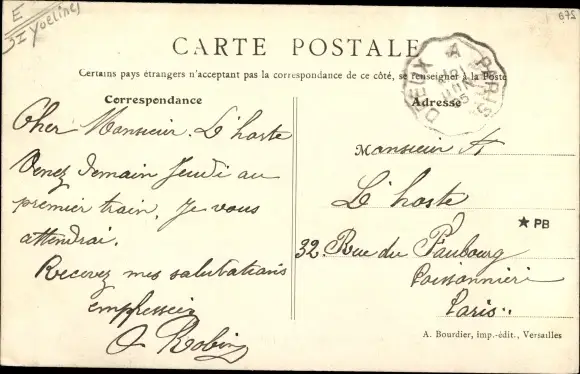 E
Yvelines
672
CARTE POSTALE
Certains pays étrangers n'acceptant pas la correspondance de ce côté, se renseigner à la Poste
Correspondance
Cher Monsieur. L'hoste
Venez demain Jeudi au
premier train. Je vous
attendrai.
Recevez mes salutations
empressées
Robin
DREUX A PARIS
JUIN
Adresse
Monsieur A
L'hoste
32. Rue du Faubourg
Poissonnieri
Paris..
★ PB
A. Bourdier, imp.-édit., Versailles